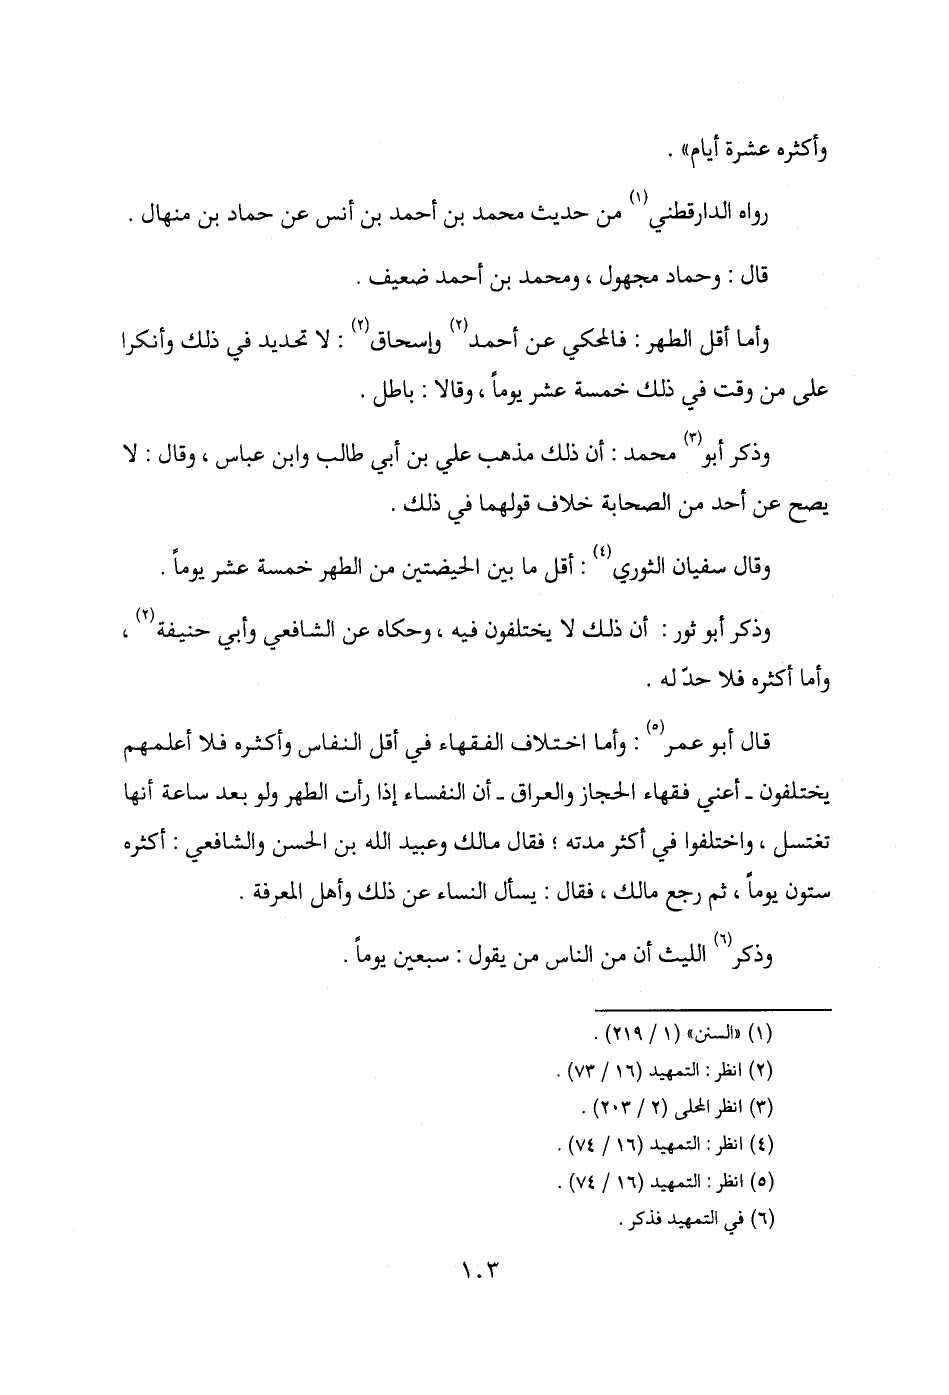 وأكثره عشرة أيام» .
رواه الدارقطني(١) من حديث محمد بن أحمد بن أنس عن حماد بن منهال .
قال : وحماد مجهول ، ومحمد بن أحمد ضعيف .
وأما أقل الطهر : فالمحكي عن أحمد(٢) وإسحاق(٢) : لا تحديد في ذلك وأنكرا
على من وقت في ذلك خمسة عشر يوماً ، وقالا : باطل .
وذكر أبو(٣) محمد : أن ذلك مذهب علي بن أبي طالب وابن عباس ، وقال : لا
يصح عن أحد من الصحابة خلاف قولهما في ذلك .
وقال سفيان الثوري(٤) : أقل ما بين الحيضتين من الطهر خمسة عشر يوماً .
وذكر أبو ثور : أن ذلك لا يختلفون فيه ، وحكاه عن الشافعي وأبي حنيفة(٢) ،
وأما أكثره فلا حدّ له .
قال أبو عمر(٥) : وأما اختلاف الفقهاء في أقل النفاس وأكثره فلا أعلمهم
يختلفون ـ أعني فقهاء الحجاز والعراق ـ أن النفساء إذا رأت الطهر ولو بعد ساعة أنها
تغتسل ، واختلفوا في أكثر مدته ؛ فقال مالك وعبيد الله بن الحسن والشافعي : أكثره
ستون يوماً ، ثم رجع مالك ، فقال : يسأل النساء عن ذلك وأهل المعرفة .
وذكر(٦) الليث أن من الناس من يقول : سبعين يوماً .
(١) «السنن» (١ / ٢١٩) .
(٢) انظر : التمهيد (١٦ / ٧٣) .
(٣) انظر المحلى (٢ / ٢٠٣) .
(٤) انظر : التمهيد (١٦ / ٧٤) .
(٥) انظر : التمهيد (١٦ / ٧٤) .
(٦) في التمهيد فذكر .
١٠٣